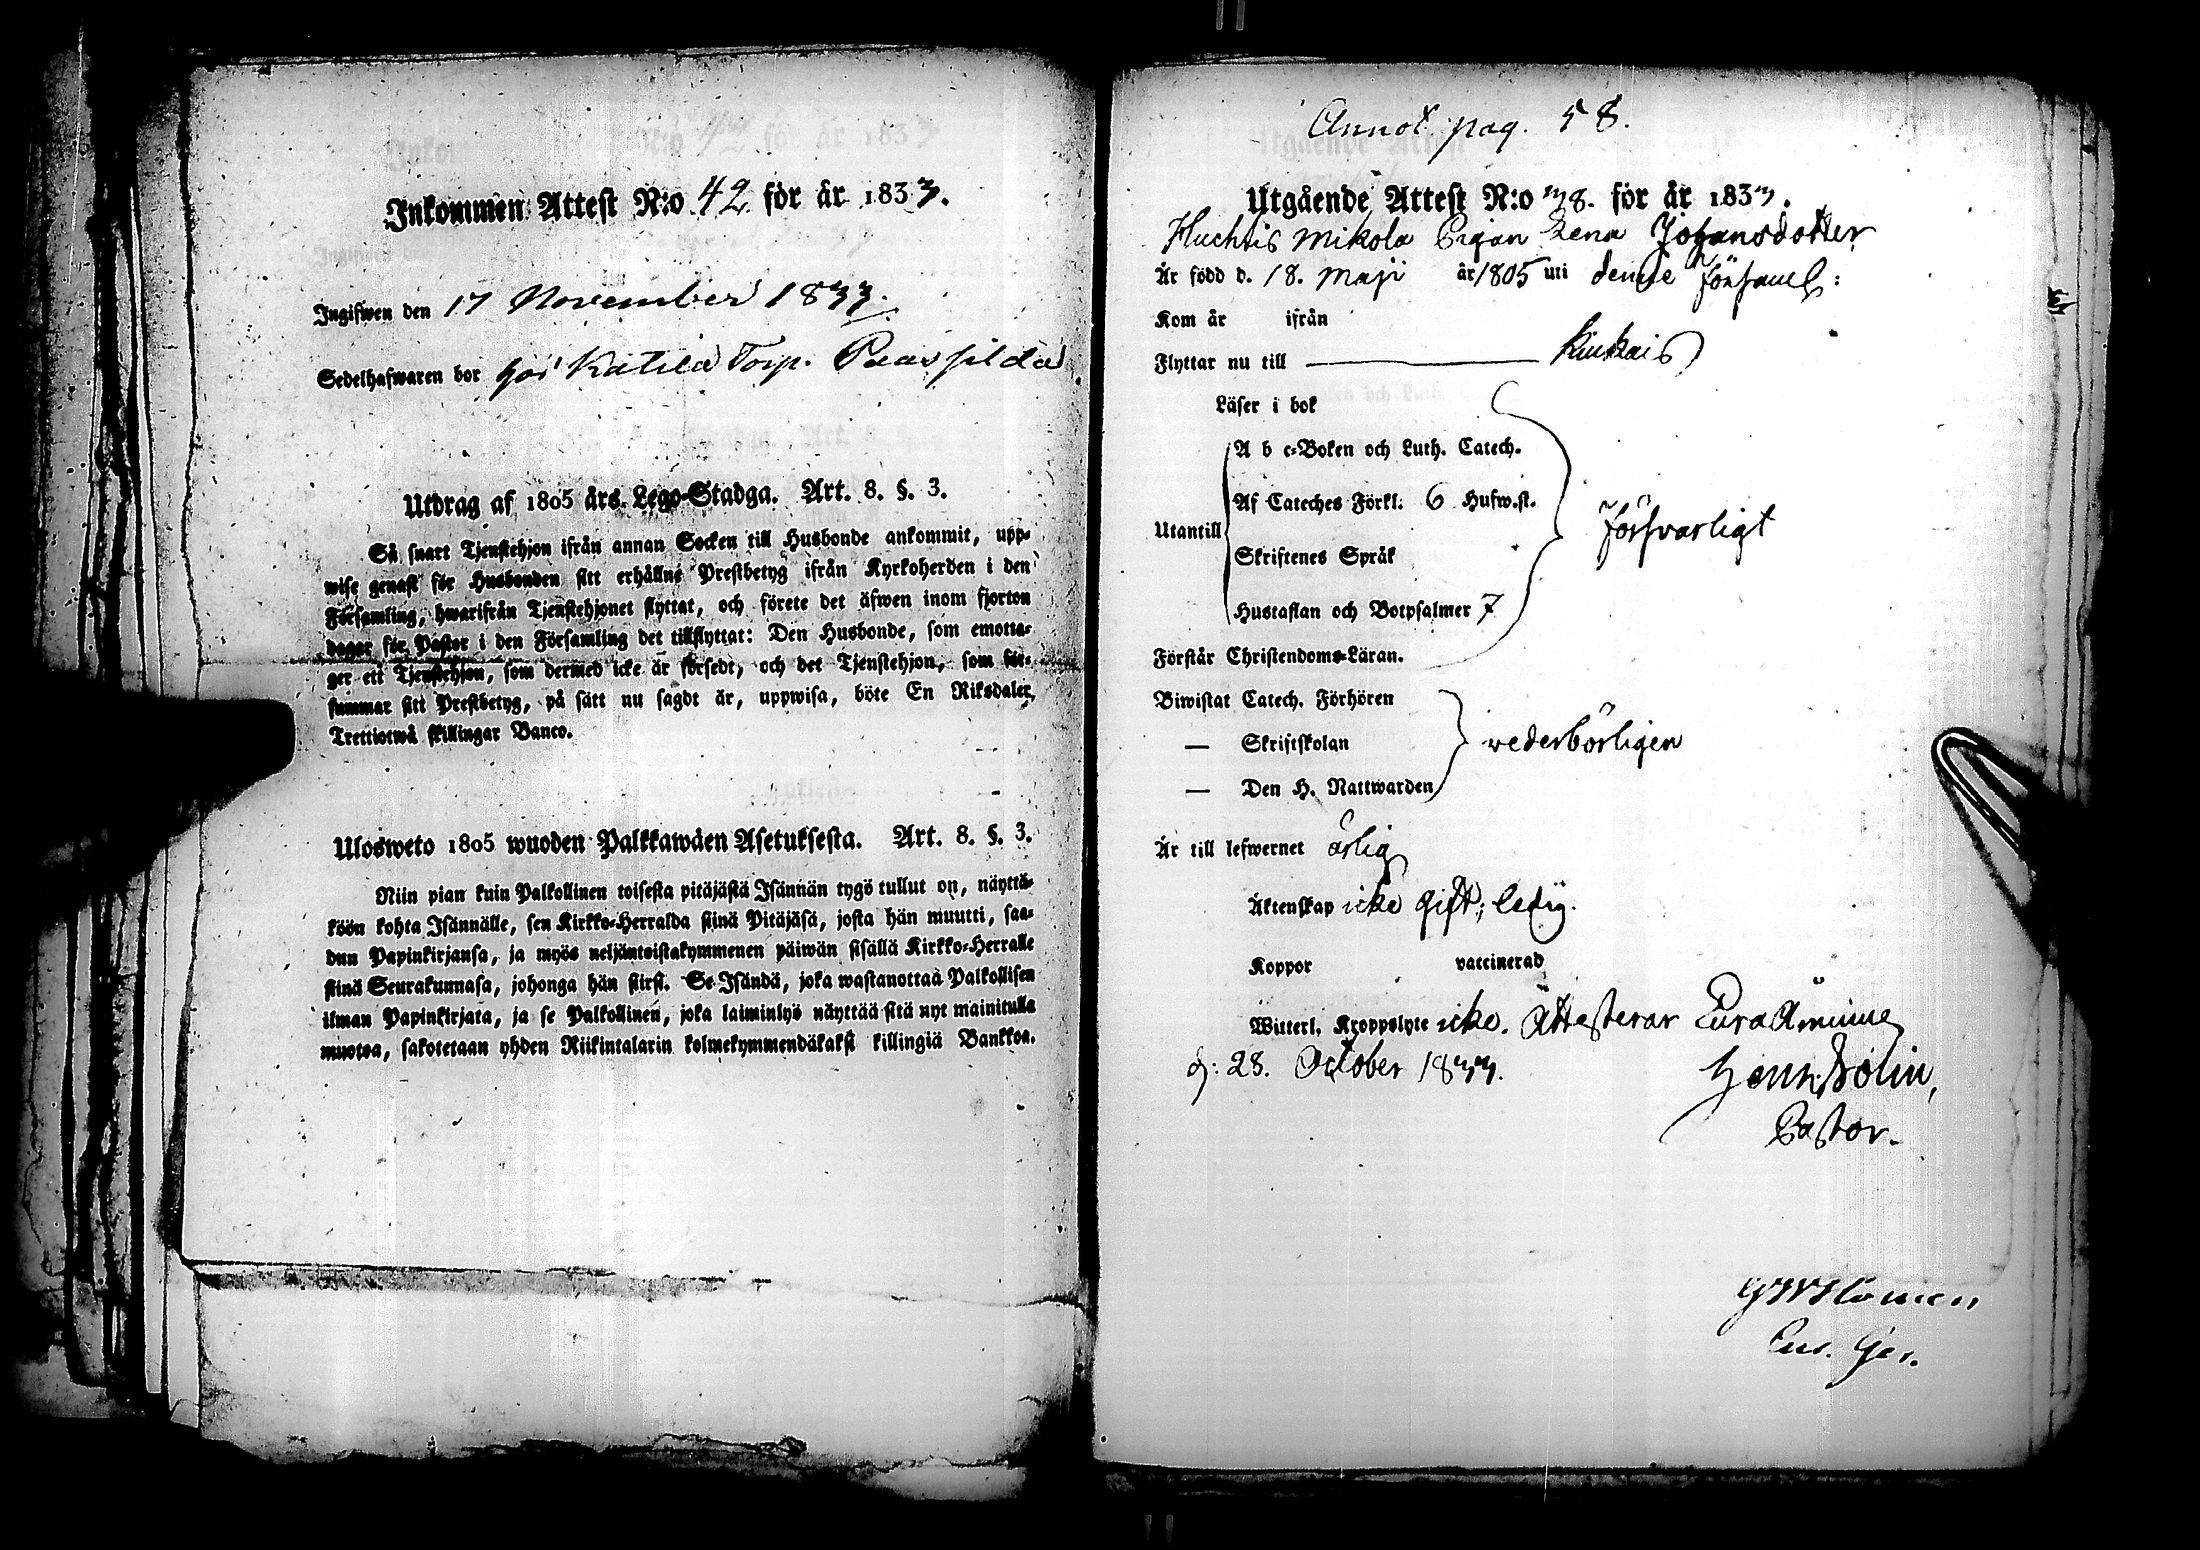 Inkommen Attest N:o 42 för år 1833.
Ingifwen den 17 November 1833.
Sedelhafwaren bor hos Katila Torp.
Utdrag af 1805 års Lego-Stadga. Art. 8. §. 3.
Så snart Tjenstehjon ifrån annan Socken till Husbonde ankommit, upp-
wise genast för Husbonden sitt erhållne Prestbetyg ifrån Kyrkoherden i den
Församling, hwarifrån Tjenstehjonet flyttat, och förete det äfwen inom fjorton
dagar för Pastor i den Församling det tillflyttat: Den Husbonde, som emotta-
ger ett Tjenstehjon, som dermed icke är försedt, och det Tjenstehjon, som för-
summar sitt Prestbetyg, på sätt nu sagdt är, uppwisa, böte En Riksdaler
Trettiotwå skillingar Banco.
Ulosweto 1805 wuoden Palkkawäen Asetuksesta. Art. 8. §. 3.
Niin pian kuin Palkollinen toisesta pitäjästä Isännän tygö tullut on, näyttä-
köön kohta Isännälle, sen Kirkko-Herralda siinä Pitäjäsä, josta hän muutti, saa-
dun Papinkirjansa, ja myös neljäntoistakymmenen päiwän sisällä Kirkko-Herralle
siinä Seurakunnasa, johonga hän siirsi. Se Isändä, joka wastanottaa Palkollisen
ilman Papinkirjata, ja se Palkollinen, joka laiminlyö näyttää sitä nyt mainitulla
muotoa, sakotetaan yhden Riikintalarin kolmekymmendäkaksi killingiä Bankkoa.
Annot. pag. 58.
Utgående Attest N:o 38. för år 1833.
Huchtis Mikola Pigan Lena Johansdotter
Är född d. 18. Maji år 1805 uti denne Församl:
Kom år ifrån
Flyttar nu till Kiukais
Läser i bok
A b c-Boken och Luth. Catech.
Af Cateches Förkl. 6 Hufw.st.
Utantill
försvarligt
Skriftenes Språk
Hustaflan och Botpsalmer 7
Förstår Christendoms-Läran.
Biwistat Catech. Förhören
— Skriftskolan vederbörligen
— Den H. Nattwarden
Är till lefwernet ärlig
Äktenskap icke gift, ledig.
Koppor vaccinerad
Witterl. Kroppslyte icke. Attesterar Eura
d: 28. October 1833. Henr. Bolin,
Pastor.